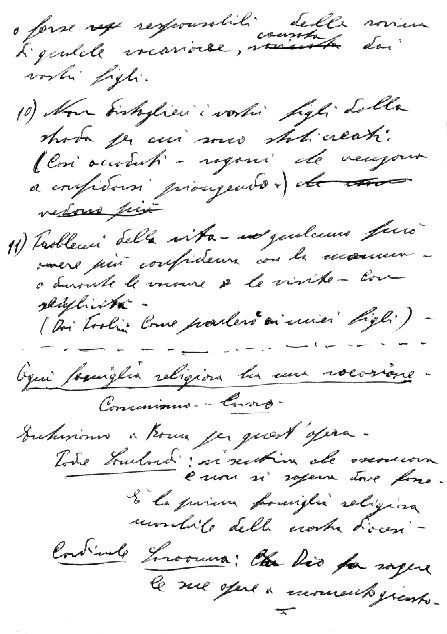 o forse responsabili della rovina
di qualche vocazione, dai
vostri figli.
10) Non distogliere i vostri figli dalla
strada per cui sono stati creati.
(Casi accaduti - ragazzi che vengono
a confidarsi piangendo.) che
vedono più
11) Problemi della vita - qualcuno può
avere più confidenza con la mamma -
o durante le vacanze o le visite - con
semplicità -
(Dai Taolin: Come parlerò ai miei figli) -
Ogni famiglia religiosa ha una vocazione -
Comunismo - Lavoro -
Entusiasmo a Roma per quest'opera -
Padre Lombardi: si sentiva che mancava
e non si sapeva dove fosse -
È la prima famiglia religiosa
maschile della nostra diocesi -
Cardinale : Che Dio fa sorgere
le sue opere a momento giusto -